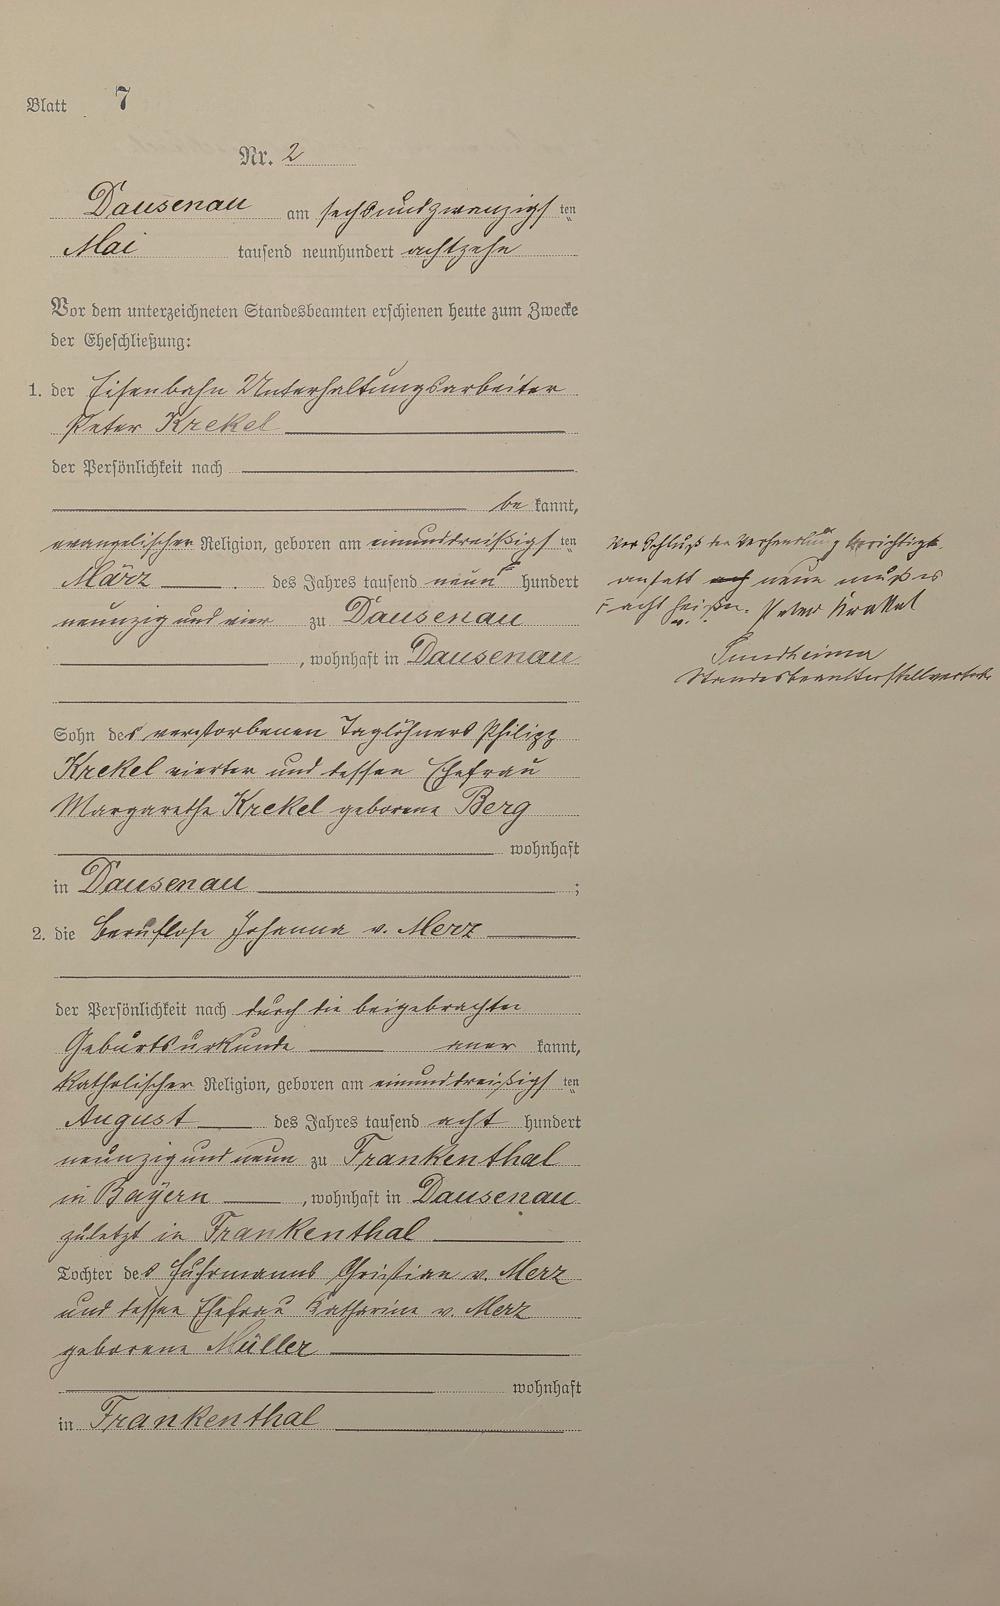 Blatt 7
Nr. 2
Dausenau am sechsundzwanzigsten
Mai tausend neunhundert achtzehn
Vor dem unterzeichneten Standesbeamten erschienen heute zum Zwecke
der Eheschließung:
1. der Eisenbahn Unterhaltungsarbeiter
Peter Krekel
der Persönlichkeit nach
be kannt,
evangelischer Religion, geboren am einunddreißigsten
März des Jahres tausend neun hundert
neunzig und vier zu Dausenau
, wohnhaft in Dausenau
Sohn des verstorbenen Taglöhners Philipp
Krekel vierter und dessen Ehefrau
Margarethe Krekel geborene Berg
wohnhaft
in Dausenau ;
2. die berufslose Johanna v. Merz
der Persönlichkeit nach durch die beigebrachte
Geburtsurkunde aner kannt,
katholischer Religion, geboren am einunddreißigsten
August des Jahres tausend acht hundert
neunzig und neun zu Frankenthal
in Bayern , wohnhaft in Dausenau
zuletzt in Frankenthal
Tochter des Fuhrmanns Christian v. Merz
und dessen Ehefrau Katharina v. Merz
geborene Müller
wohnhaft
in Frankenthal
Vor Schluß der Verhandlung berichtigt.
anstatt neun muß es
acht heißen. Peter Krekel
Sundheimer
Standesbeamterstellvertreter